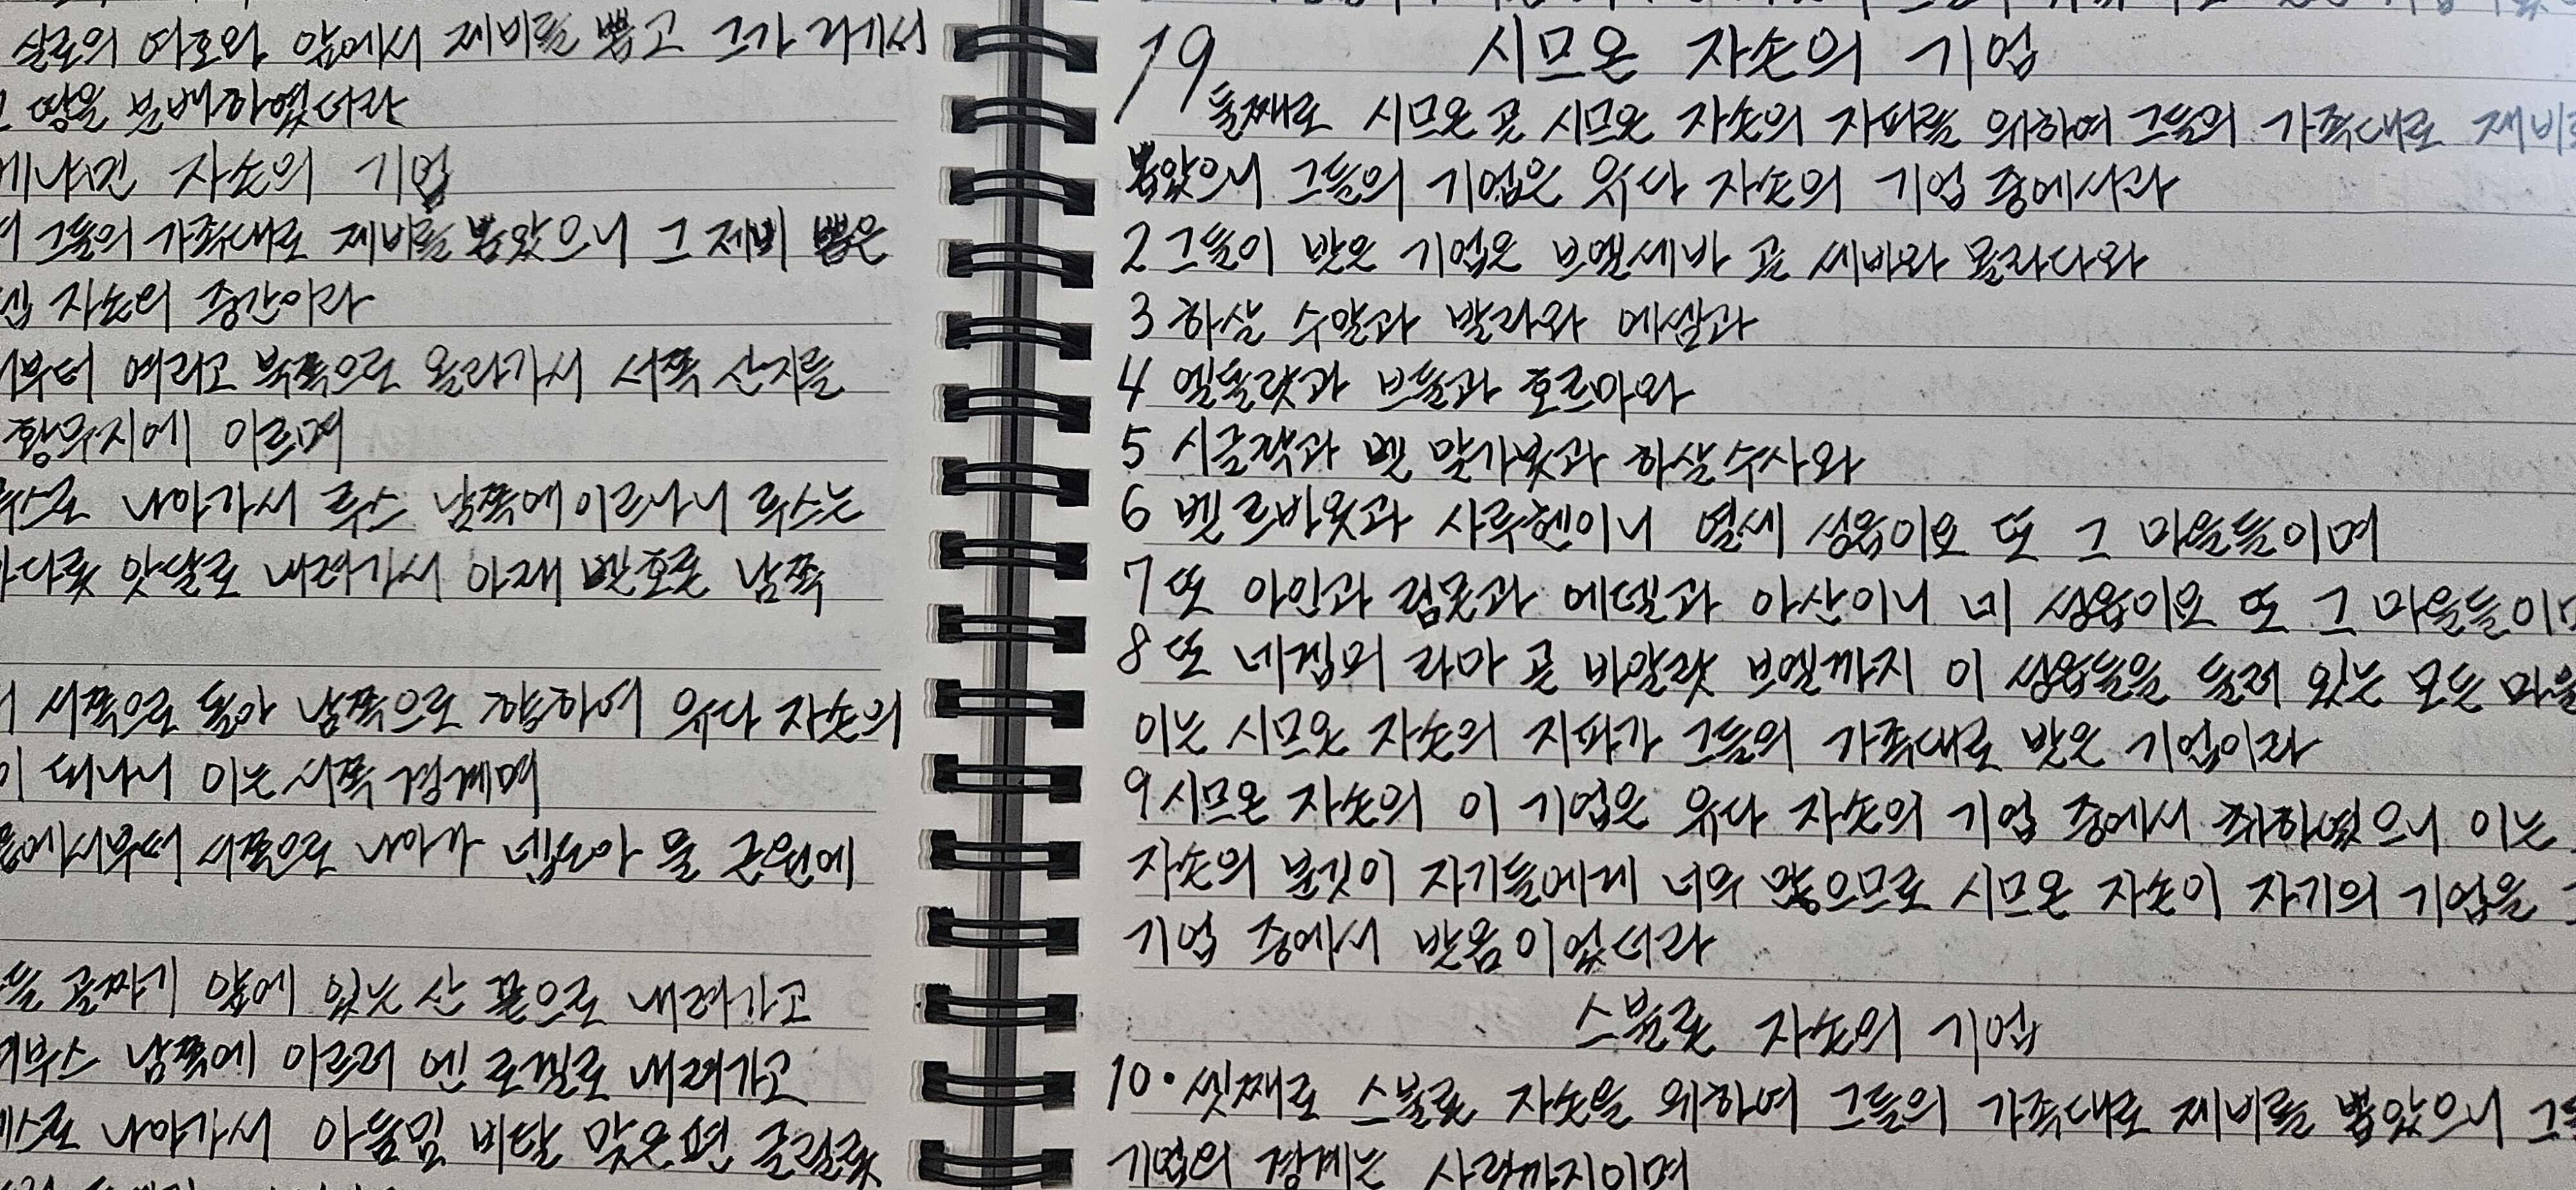 실로의 여호와 앞에서 제비를 뽑고 그가 거기서
땅을 분배하였더라
베냐민 자손의 기업
그들의 가족대로 제비를 뽑았으니 그 제비 뽑은
자손의 중간이라
여리고 북쪽으로 올라가서 서쪽 산지를
황무지에 이르며
나아가서 루스 남쪽에 이르나니 루스는
앗달로 내려가서 아래 벧호론 남쪽
서쪽으로 돌아 남쪽으로 향하여 유다 자손의
떠나니 이는 서쪽 경계며
서쪽으로 나아가 넵도아 물 근원에
골짜기 앞에 있는 산 끝으로 내려가고
남쪽에 이르러 엔 로겔로 내려가고
나아가서 아둠밈 비탈 맞은편 글릴롯
19 시므온 자손의 기업
둘째로 시므온 곧 시므온 자손의 지파를 위하여 그들의 가족대로
뽑았으니 그들의 기업은 유다 자손의 기업 중에서라
2 그들이 받은 기업은 브엘세바 곧 세바와 몰라다와
3 하살 수알과 발라와 에셈과
4 엘돌랏과 브둘과 호르마와
5 시글락과 벧 말가봇과 하살수사와
6 벧 르바옷과 사루헨이니 열세 성읍이요 또 그 마을들이며
7 또 아인과 림몬과 에델과 아산이니 네 성읍이요 또 그
8 또 네겝의 라마 곧 바알랏 브엘까지 이 성읍들을 둘러 있는 모든
이는 시므온 자손의 지파가 그들의 가족대로 받은 기업이라
9 시므온 자손의 이 기업은 유다 자손의 기업 중에서 취하였으니 이는
자손의 분깃이 자기들에게 너무 많으므로 시므온 자손이 자기의 기업을
기업 중에서 받음이었더라
스불론 자손의 기업
10 · 셋째로 스불론 자손을 위하여 그들의 가족대로 제비를 뽑았으니
기업의 경계는 사릿까지이며